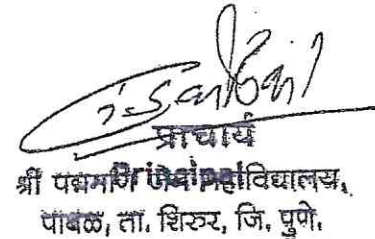 प्राचार्य
Principal
श्री पद्ममणि जैन महाविद्यालय,
पाबळ, ता. शिरुर, जि. पुणे.